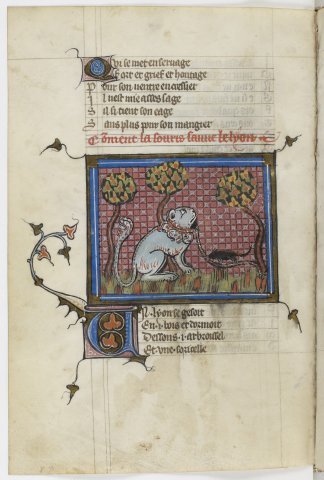 Qui se met en seruage
fort et grief et hontage
Pour son uentre enuessier
Il nest mie asses sage
Sil se tient son eage
Sans plus pour son mangier
Coment la souris sauue le lyon
Un lyon se gesoit
En .i. bois et dormoit
Dessous .i. arbroissel
Et une soricelle